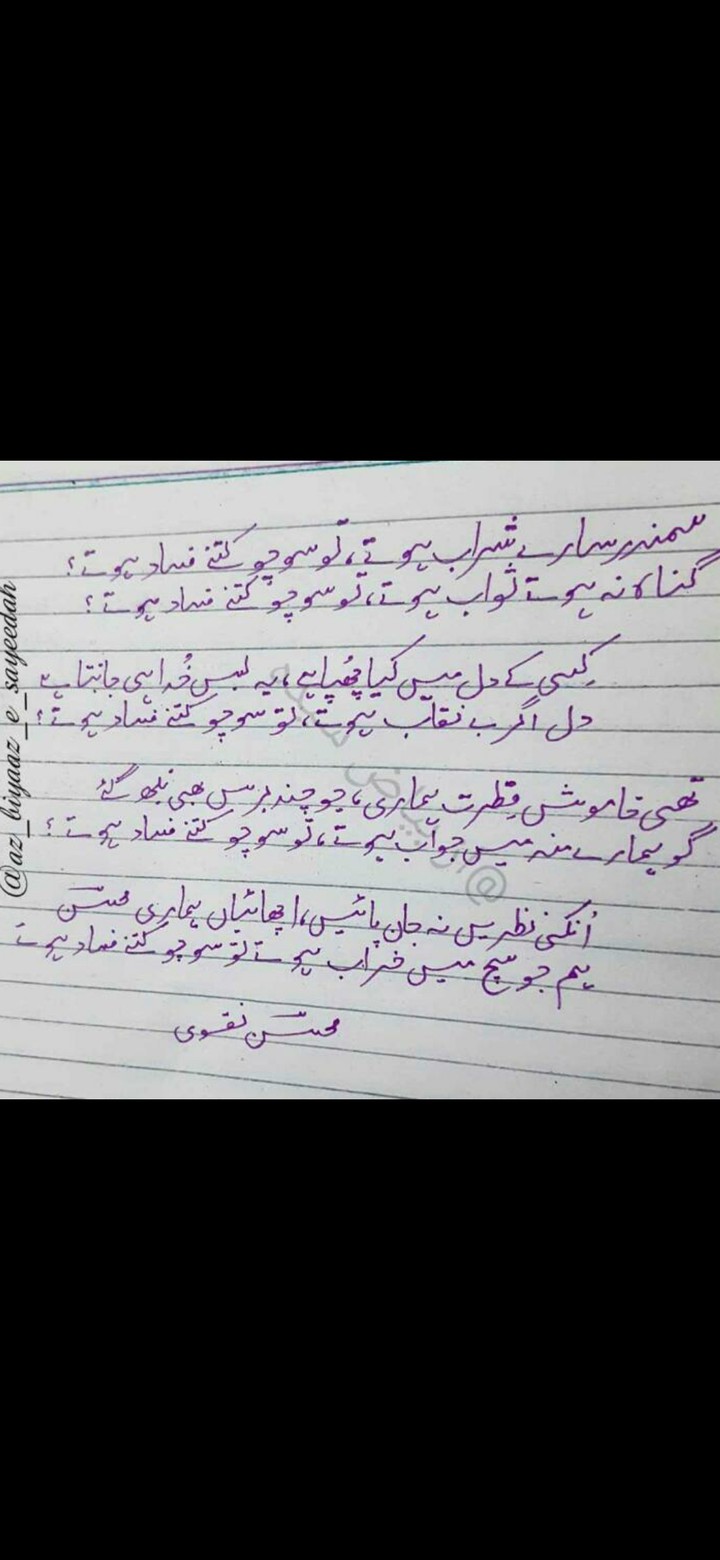 سمندر سارے شراب ہوتے، تو سوچو کتنے فساد ہوتے؟
گناہ نہ ہوتے ثواب ہوتے، تو سوچو کتنے فساد ہوتے؟
کِسی کے دل میں کیا چُھپا ہے، یہ بس خُدا ہی جانتا ہے
دل اگر بے نقاب ہوتے، تو سوچو کتنے فساد ہوتے؟
تھی خاموشی فِطرت ہماری، جو چند برس بھی نبھ گئے
گر ہمارے منہ میں جواب ہوتے، تو سوچو کتنے فساد ہوتے؟
اُنکی نظریں نہ جان پائیں، اچھائیاں ہماری محسن
ہم جو سچ میں خراب ہوتے تو سوچو کتنے فساد ہوتے
محسن نقوی
@az_biyaaz_e_sayeedah